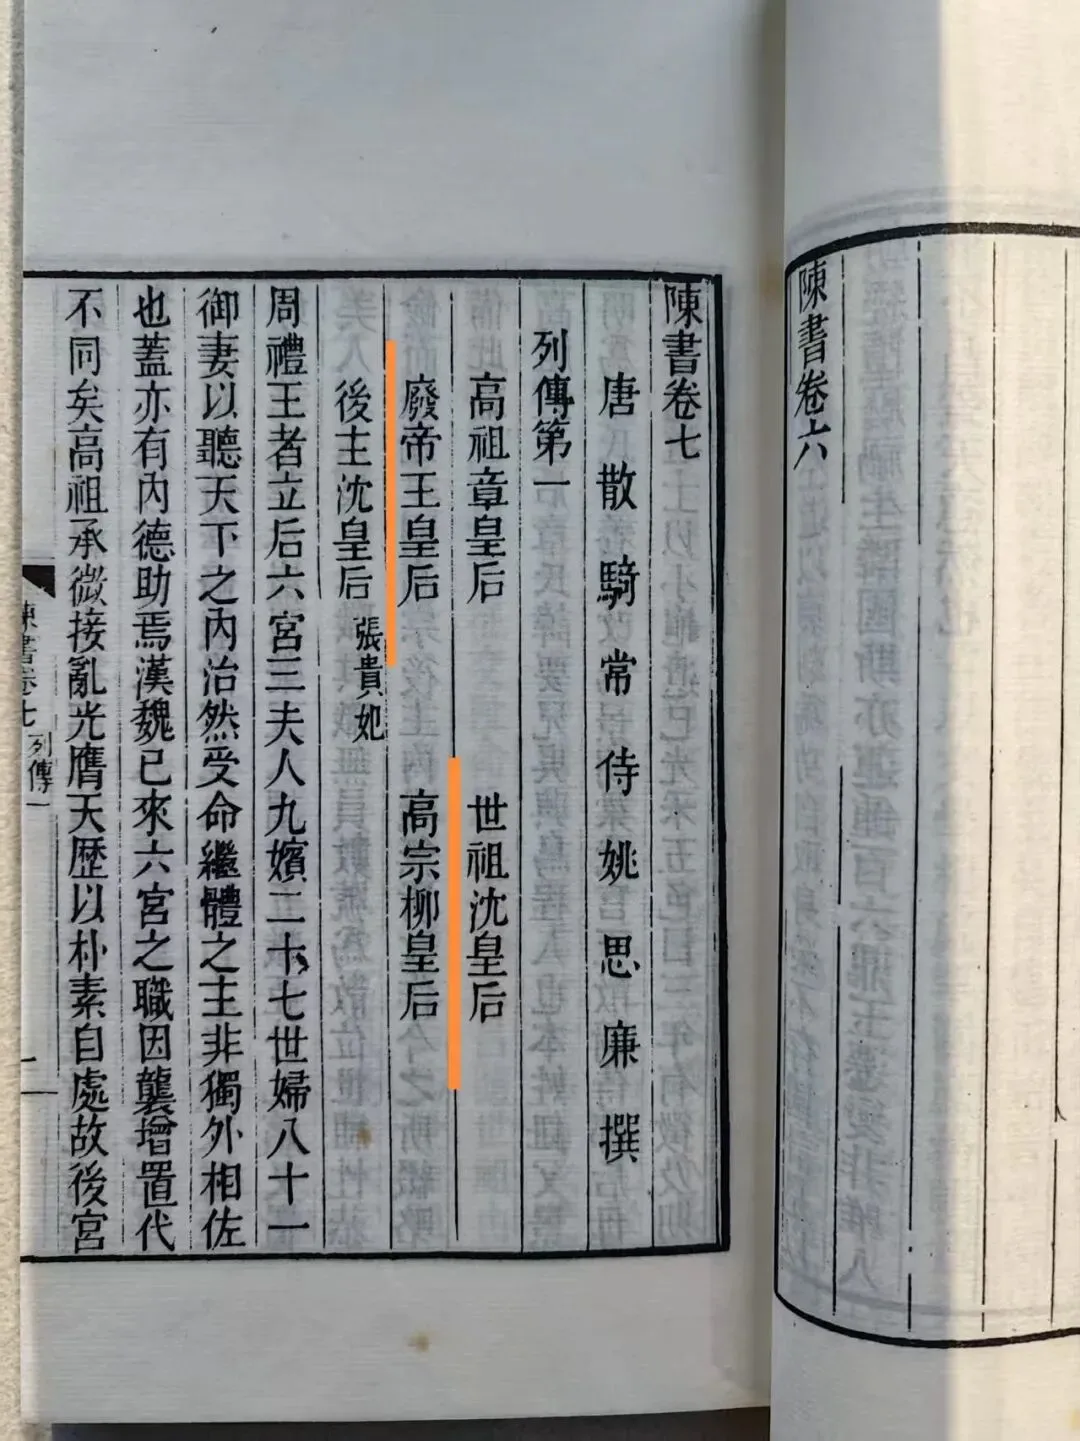 陳書卷六
陳書卷七
唐散騎常侍姚思廉撰
列傳第一
高祖章皇后 世祖沈皇后
廢帝王皇后 高宗柳皇后
後主沈皇后 張貴妃
周禮王者立后六宮三夫人九嬪二十七世婦八十一
御妻以聽天下之內治然受命繼體之主非獨外相佐
也蓋亦有內德助焉漢魏已來六宮之職因襲增置代
不同矣高祖承微接亂光膺天歷以朴素自處故後宮
陳書卷七 列傳一
一